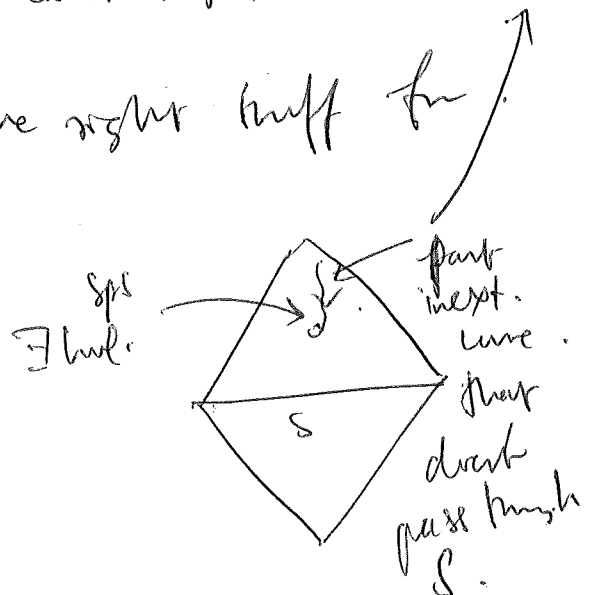 right stuff for
sps
∃ hole.
part
inext.
curve.
that
doesn't
pass through
S.
S